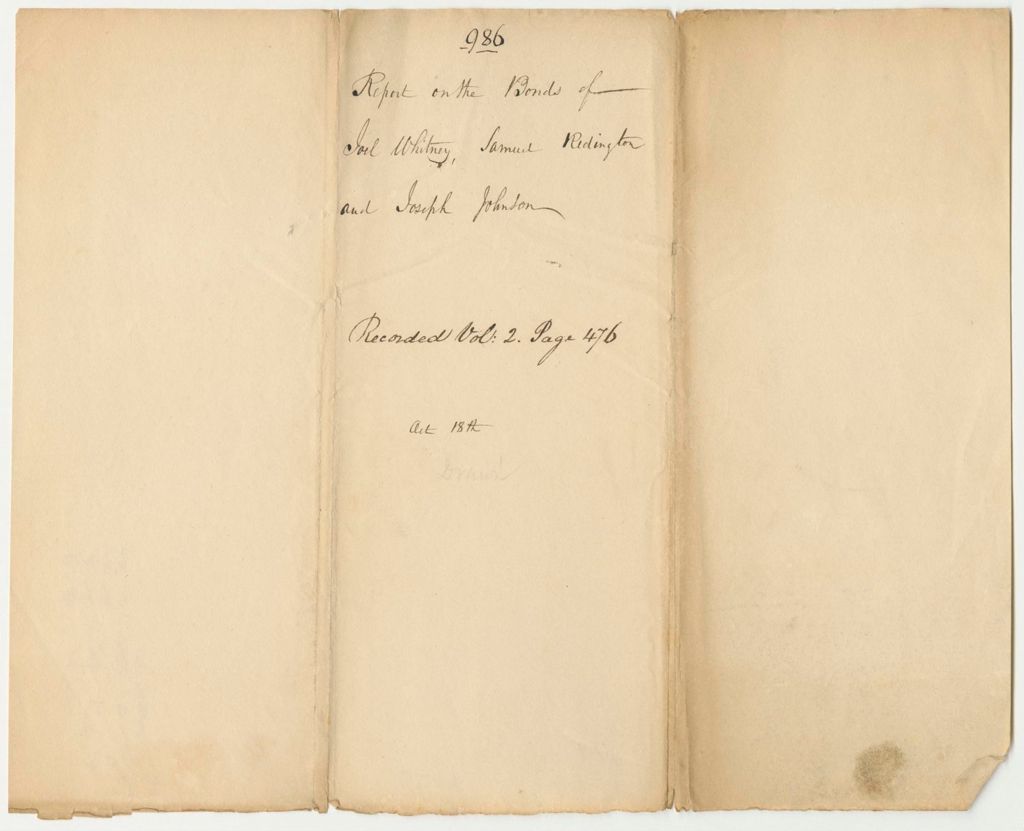 986
Report on the Bonds of
Joel Whitney, Samuel Redington
and Joseph Johnson
Recorded Vol: 2. Page 476
Oct 18th